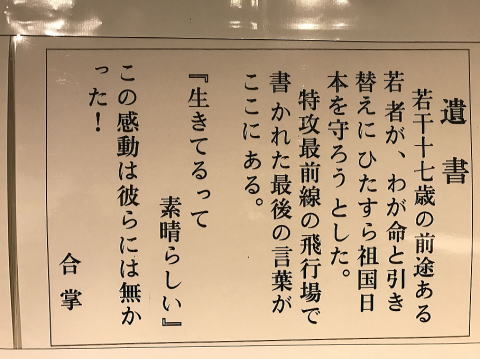 遺書
若干十七歳の前途ある
若者が、わが命と引き
替えにひたすら祖国日
本を守ろうとした。
特攻最前線の飛行場で
書かれた最後の言葉が
ここにある。
『生きてるって
素晴らしい』
この感動は彼らには無か
った！
合掌